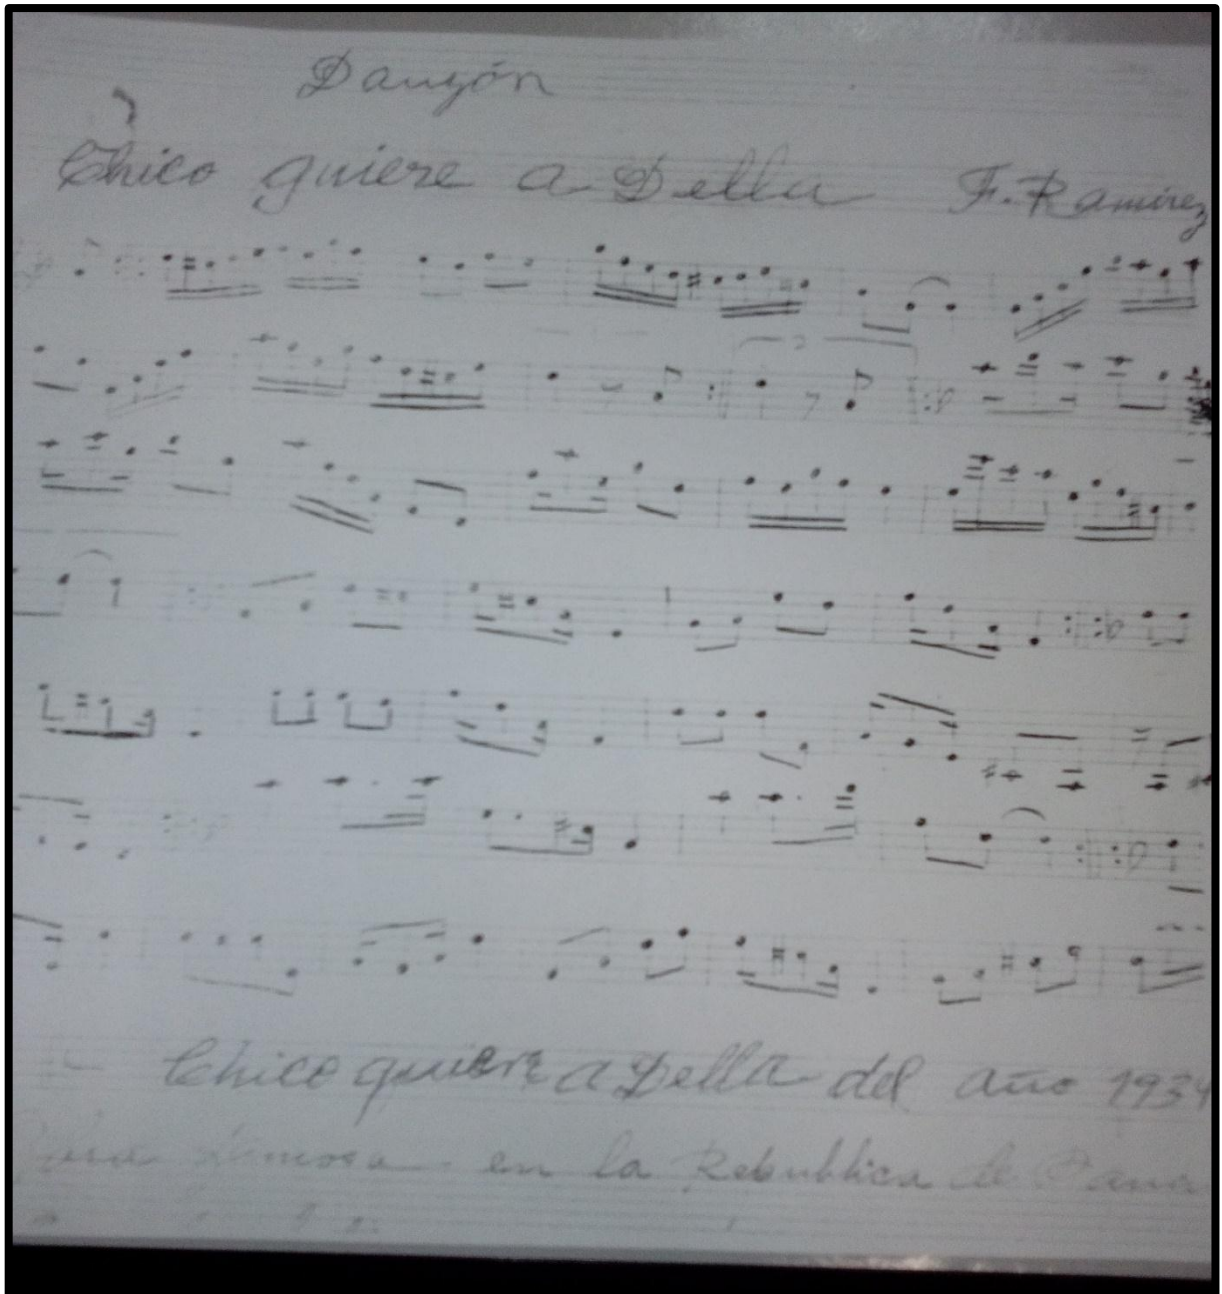 Danzón
Chico quiere a Della F. Ramírez
3
Chico quiere a Della del año 1934
famosa en la Republica de Pana